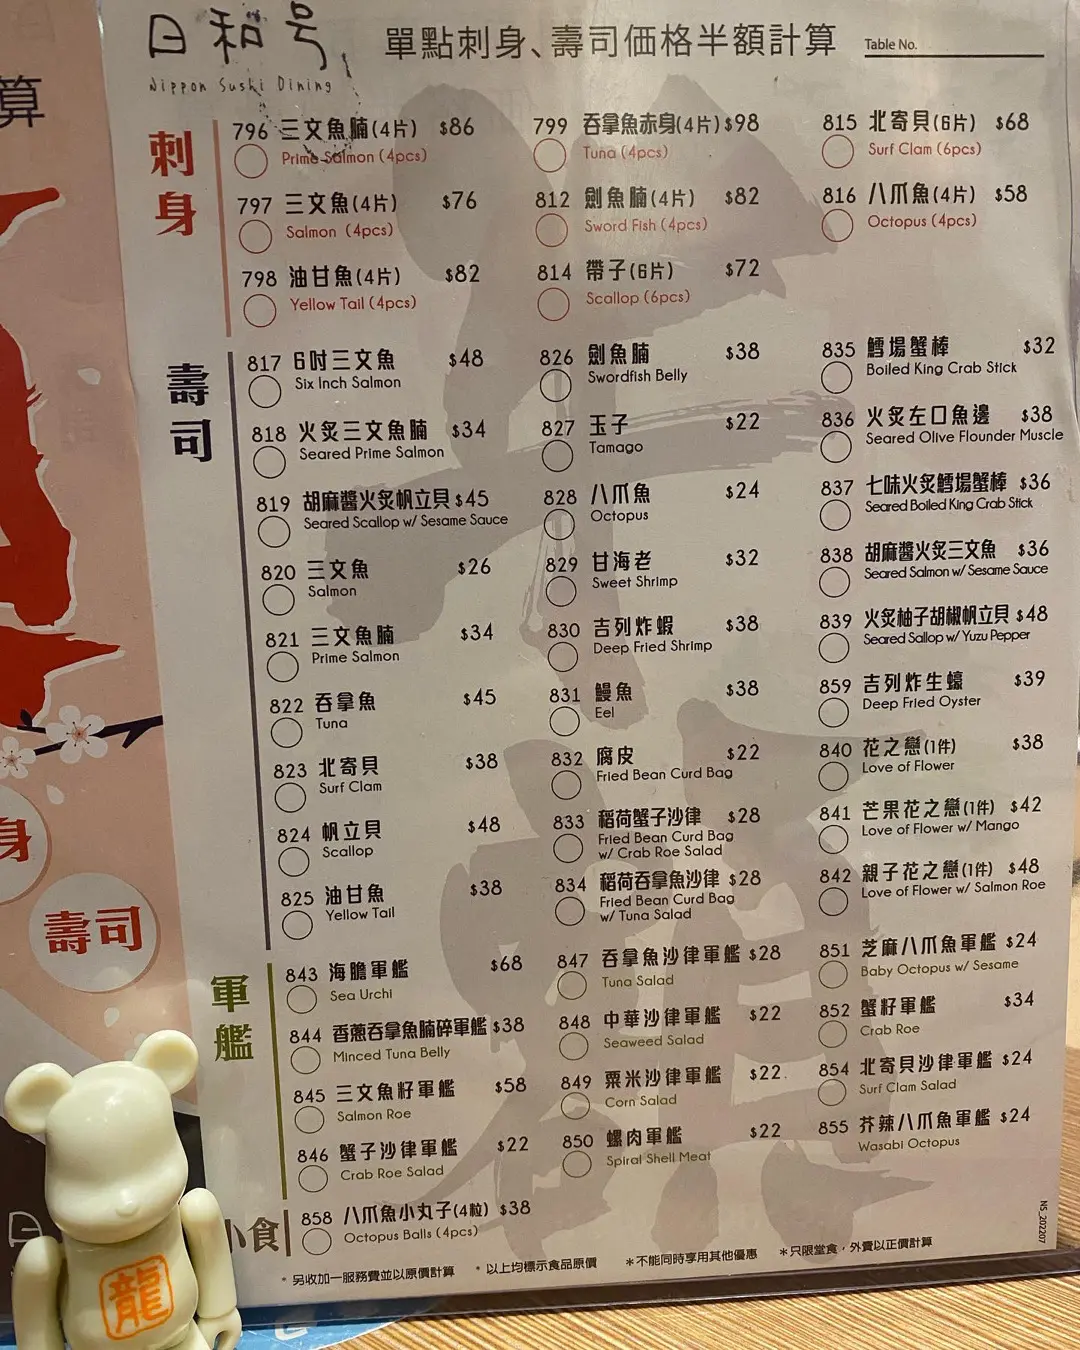 日和号
Nippon Sushi Dining
單點刺身、壽司価格半額計算
Table No.
刺身
796 三文魚腩(4片) $86
Prime Salmon (4pcs)
797 三文魚(4片) $76
Salmon (4pcs)
798 油甘魚(4片) $82
Yellow Tail (4pcs)
799 吞拿魚赤身(4片) $98
Tuna (4pcs)
812 劍魚腩(4片) $82
Sword Fish (4pcs)
814 帶子(6片) $72
Scallop (6pcs)
815 北寄貝(6片) $68
Surf Clam (6pcs)
816 八爪魚(4片) $58
Octopus (4pcs)
壽司
817 6吋三文魚 $48
Six Inch Salmon
818 火炙三文魚腩 $34
Seared Prime Salmon
819 胡麻醬火炙帆立貝 $45
Seared Scallop w/ Sesame Sauce
820 三文魚 $26
Salmon
821 三文魚腩 $34
Prime Salmon
822 吞拿魚 $45
Tuna
823 北寄貝 $38
Surf Clam
824 帆立貝 $48
Scallop
825 油甘魚 $38
Yellow Tail
826 劍魚腩 $38
Swordfish Belly
827 玉子 $22
Tamago
828 八爪魚 $24
Octopus
829 甘海老 $32
Sweet Shrimp
830 吉列炸蝦 $38
Deep Fried Shrimp
831 鰻魚 $38
Eel
832 腐皮 $22
Fried Bean Curd Bag
833 稻荷蟹子沙律 $28
Fried Bean Curd Bag
w/ Crab Roe Salad
834 稻荷吞拿魚沙律 $28
Fried Bean Curd Bag
w/ Tuna Salad
835 鱈場蟹棒 $32
Boiled King Crab Stick
836 火炙左口魚邊 $38
Seared Olive Flounder Muscle
837 七味火炙鱈場蟹棒 $36
Seared Boiled King Crab Stick
838 胡麻醬火炙三文魚 $36
Seared Salmon w/ Sesame Sauce
839 火炙柚子胡椒帆立貝 $48
Seared Sallop w/ Yuzu Pepper
859 吉列炸生蠔 $39
Deep Fried Oyster
840 花之戀(1件) $38
Love of Flower
841 芒果花之戀(1件) $42
Love of Flower w/ Mango
842 親子花之戀(1件) $48
Love of Flower w/ Salmon Roe
軍艦
843 海膽軍艦 $68
Sea Urchi
844 香蔥吞拿魚腩碎軍艦 $38
Minced Tuna Belly
845 三文魚籽軍艦 $58
Salmon Roe
846 蟹子沙律軍艦 $22
Crab Roe Salad
847 吞拿魚沙律軍艦 $28
Tuna Salad
848 中華沙律軍艦 $22
Seaweed Salad
849 粟米沙律軍艦 $22
Corn Salad
850 螺肉軍艦 $22
Spiral Shell Meat
851 芝麻八爪魚軍艦 $24
Baby Octopus w/ Sesame
852 蟹籽軍艦 $34
Crab Roe
854 北寄貝沙律軍艦 $24
Surf Clam Salad
855 芥辣八爪魚軍艦 $24
Wasabi Octopus
小食
858 八爪魚小丸子(4粒) $38
Octopus Balls (4pcs)
* 另收加一服務費並以原價計算 * 以上均標示食品原價 *不能同時享用其他優惠 *只限堂食，外賣以正價計算
NS_202207
算
身
壽司
日
龍